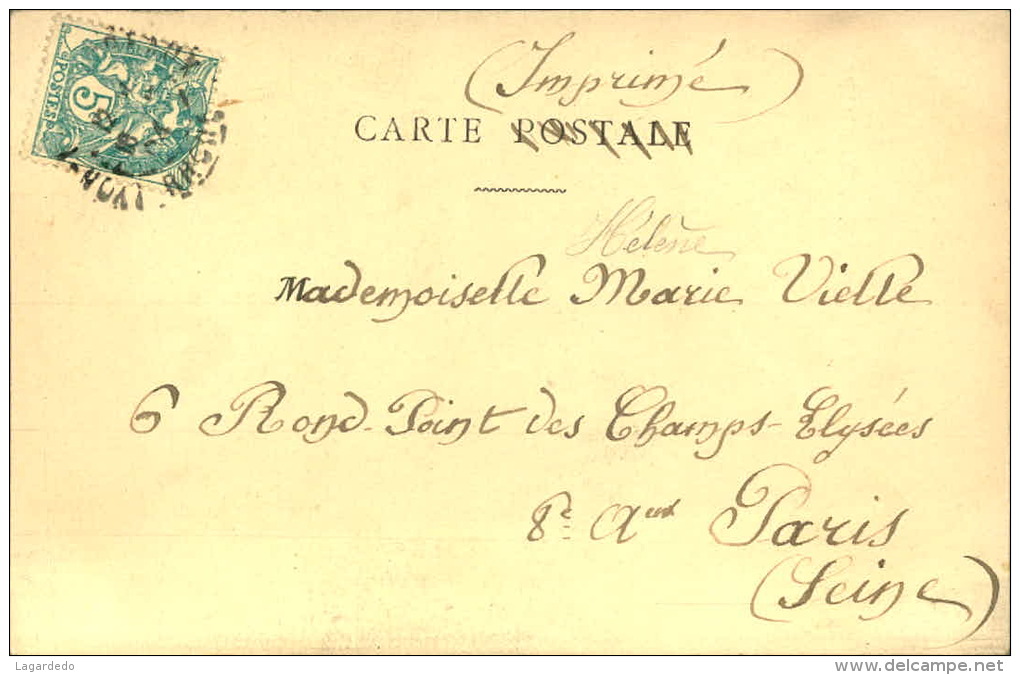 (Imprimé)
CARTE POSTALE
5
POSTES
Hélène
Mademoiselle Marie Vielle
6 Rond-Point des Champs-Elysées
8e Aux Paris
(Seine)
Lagardedo
www.delcampe.net